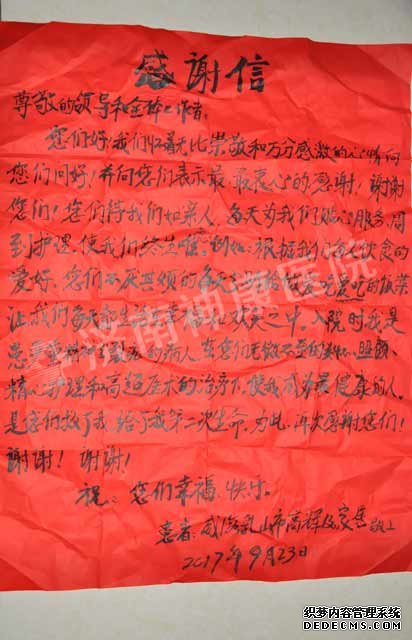 感谢信
尊敬的领导和全体工作者:
您们好!我们怀着无比崇敬和万分感激的心情向
您们问好!并向您们表示最最衷心的感谢!谢谢
您们!您们待我们如亲人,每天为我们贴心服务,周
到护理,使我们终生难忘。例如:根据我们每天饮食的
爱好,您们不厌其烦的每天给做爱吃的饭菜
让我们每天都生活在幸福和欢笑之中。入院时我是
患严重精神的病人,在您们无微不至的关心、照顾、
精心护理和高超医术的治疗下,使我成为最健康的人。
是您们救了我,给了我第二次生命,为此,再次感谢您们!
谢谢!谢谢!
祝:您们幸福、快乐。
患者:威海乳山市高辉及家属 敬上
2017年9月23日
济南神康医院
织梦内容管理系统
DEDECMS.COM